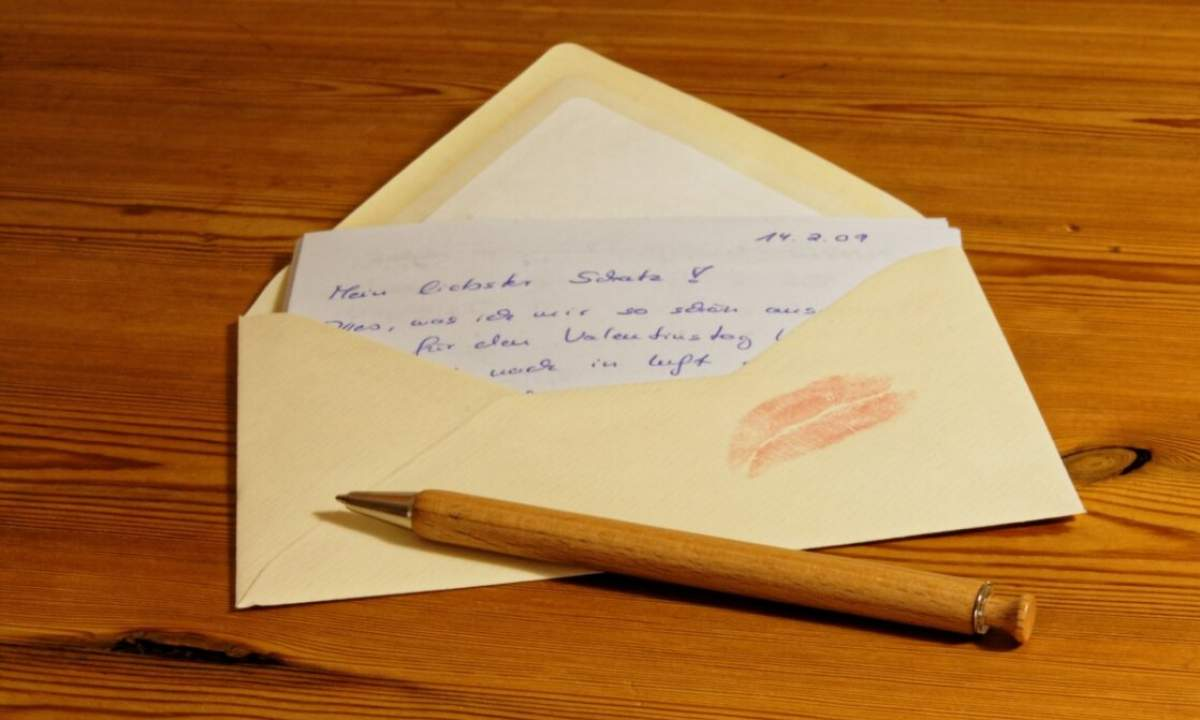 14.2.09
Mein liebster Schatz!
Alles, was ich mir so schön aus
für den Valentinstag
noch in Luft